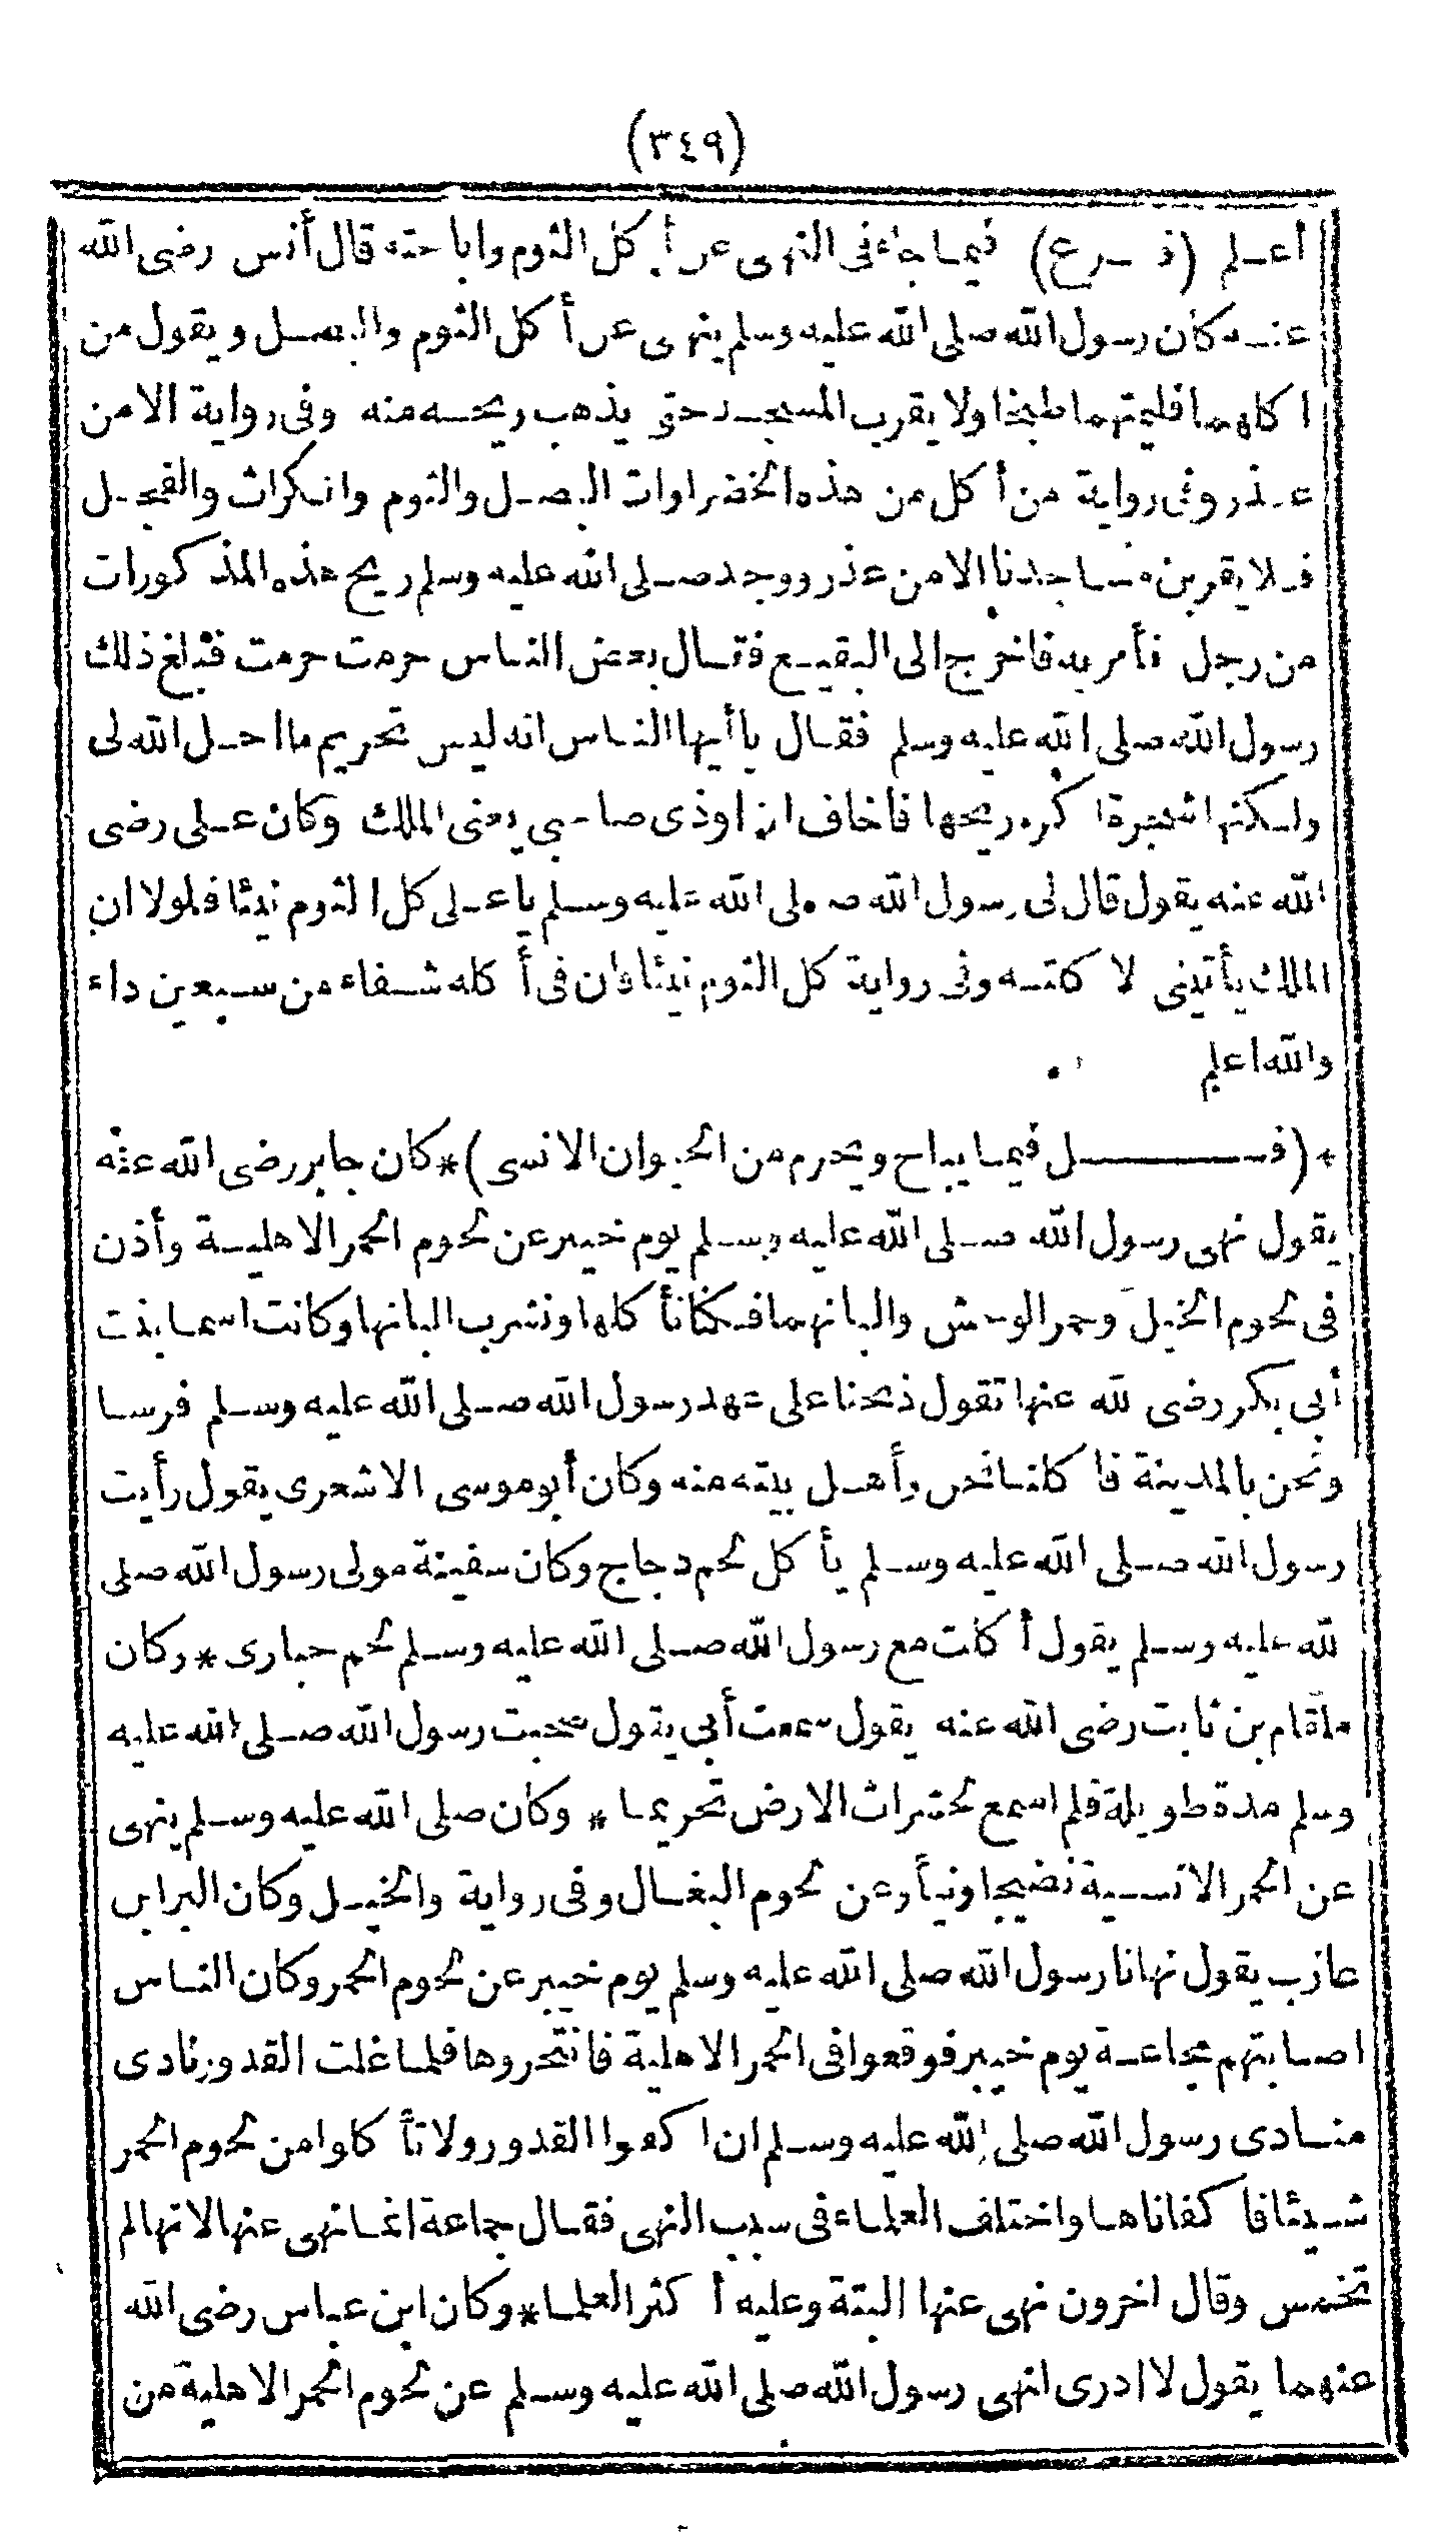 (٣٤٩)
أعلم (فرع) فيما جاء فى النهى عن أكل الثوم واباحته قال أنس رضى الله
عنه كان رسول الله صلى الله عليه وسلم ينهى عن أكل الثوم والبصل ويقول من
اكلهما فليمتهما طبخا ولا يقرب المسجد حتى يذهب ريحه منه وفى رواية الا من
عذر وفى رواية من أكل من هذه الخضراوات البصل والثوم والكراث والفجل
فلا يقربن مساجدنا الا من عذر ووجد صلى الله عليه وسلم ريح هذه المذكورات
من رجل فأمر به فاخرج الى البقيع فقال بعض الناس حرمت حرمت فبلغ ذلك
رسول الله صلى الله عليه وسلم فقال يا أيها الناس انه ليس تحريم ما احل الله لى
ولكنها شجرة اكره ريحها فأخاف ان اوذى صاحبي يعنى الملك وكان على رضى
الله عنه يقول قال لى رسول الله صلى الله عليه وسلم يا على كل الثوم نيئا فلولا ان
الملك يأتينى لا كلته وفى رواية كل الثوم نيئا فان فى أكله شفاء من سبعين داء
والله اعلم
* (فصل فيما يباح ويحرم من الحيوان الانسى) * كان جابر رضى الله عنه
يقول نهى رسول الله صلى الله عليه وسلم يوم خيبر عن لحوم الحمر الاهلية وأذن
فى لحوم الخيل وحمر الوحش والبانهما فكنا نأكلها ونشرب البانها وكانت اسما بنت
أبي بكر رضى لله عنها تقول ذبحنا على عهد رسول الله صلى الله عليه وسلم فرسا
ونحن بالمدينة فا كلنا نحن وأهل بيته منه وكان أبو موسى الاشعرى يقول رأيت
رسول الله صلى الله عليه وسلم يأكل لحم دجاج وكان سفينة مولى رسول الله صلى
لله عليه وسلم يقول أكلت مع رسول الله صلى الله عليه وسلم لحم حبارى * وكان
ملقام بن ثابت رضى الله عنه يقول سمعت أبي يقول صحبت رسول الله صلى الله عليه
وسلم مدة طويلة فلم اسمع لحشرات الارض تحريما * وكان صلى الله عليه وسلم ينهى
عن الحمر الانسية نضيجا ونيأ وعن لحوم البغال وفى رواية والخيل وكان البراء بن
عازب يقول نهانا رسول الله صلى الله عليه وسلم يوم خيبر عن لحوم الحمر وكان الناس
اصابتهم مجاعة يوم خيبر فوقعوا فى الحمر الاهلية فانتحروها فلما غلت القدور نادى
منادى رسول الله صلى الله عليه وسلم ان اكفوا القدور ولا تأكلوا من لحوم الحمر
شيئا فا كفاناها واختلف العلماء فى سبب النهى فقال جماعة انما نهى عنها لانها لم
تخمس وقال اخرون نهى عنها البتة وعليه أكثر العلما * وكان ابن عباس رضى الله
عنهما يقول لا ادرى انهى رسول الله صلى الله عليه وسلم عن لحوم الحمر الاهلية من